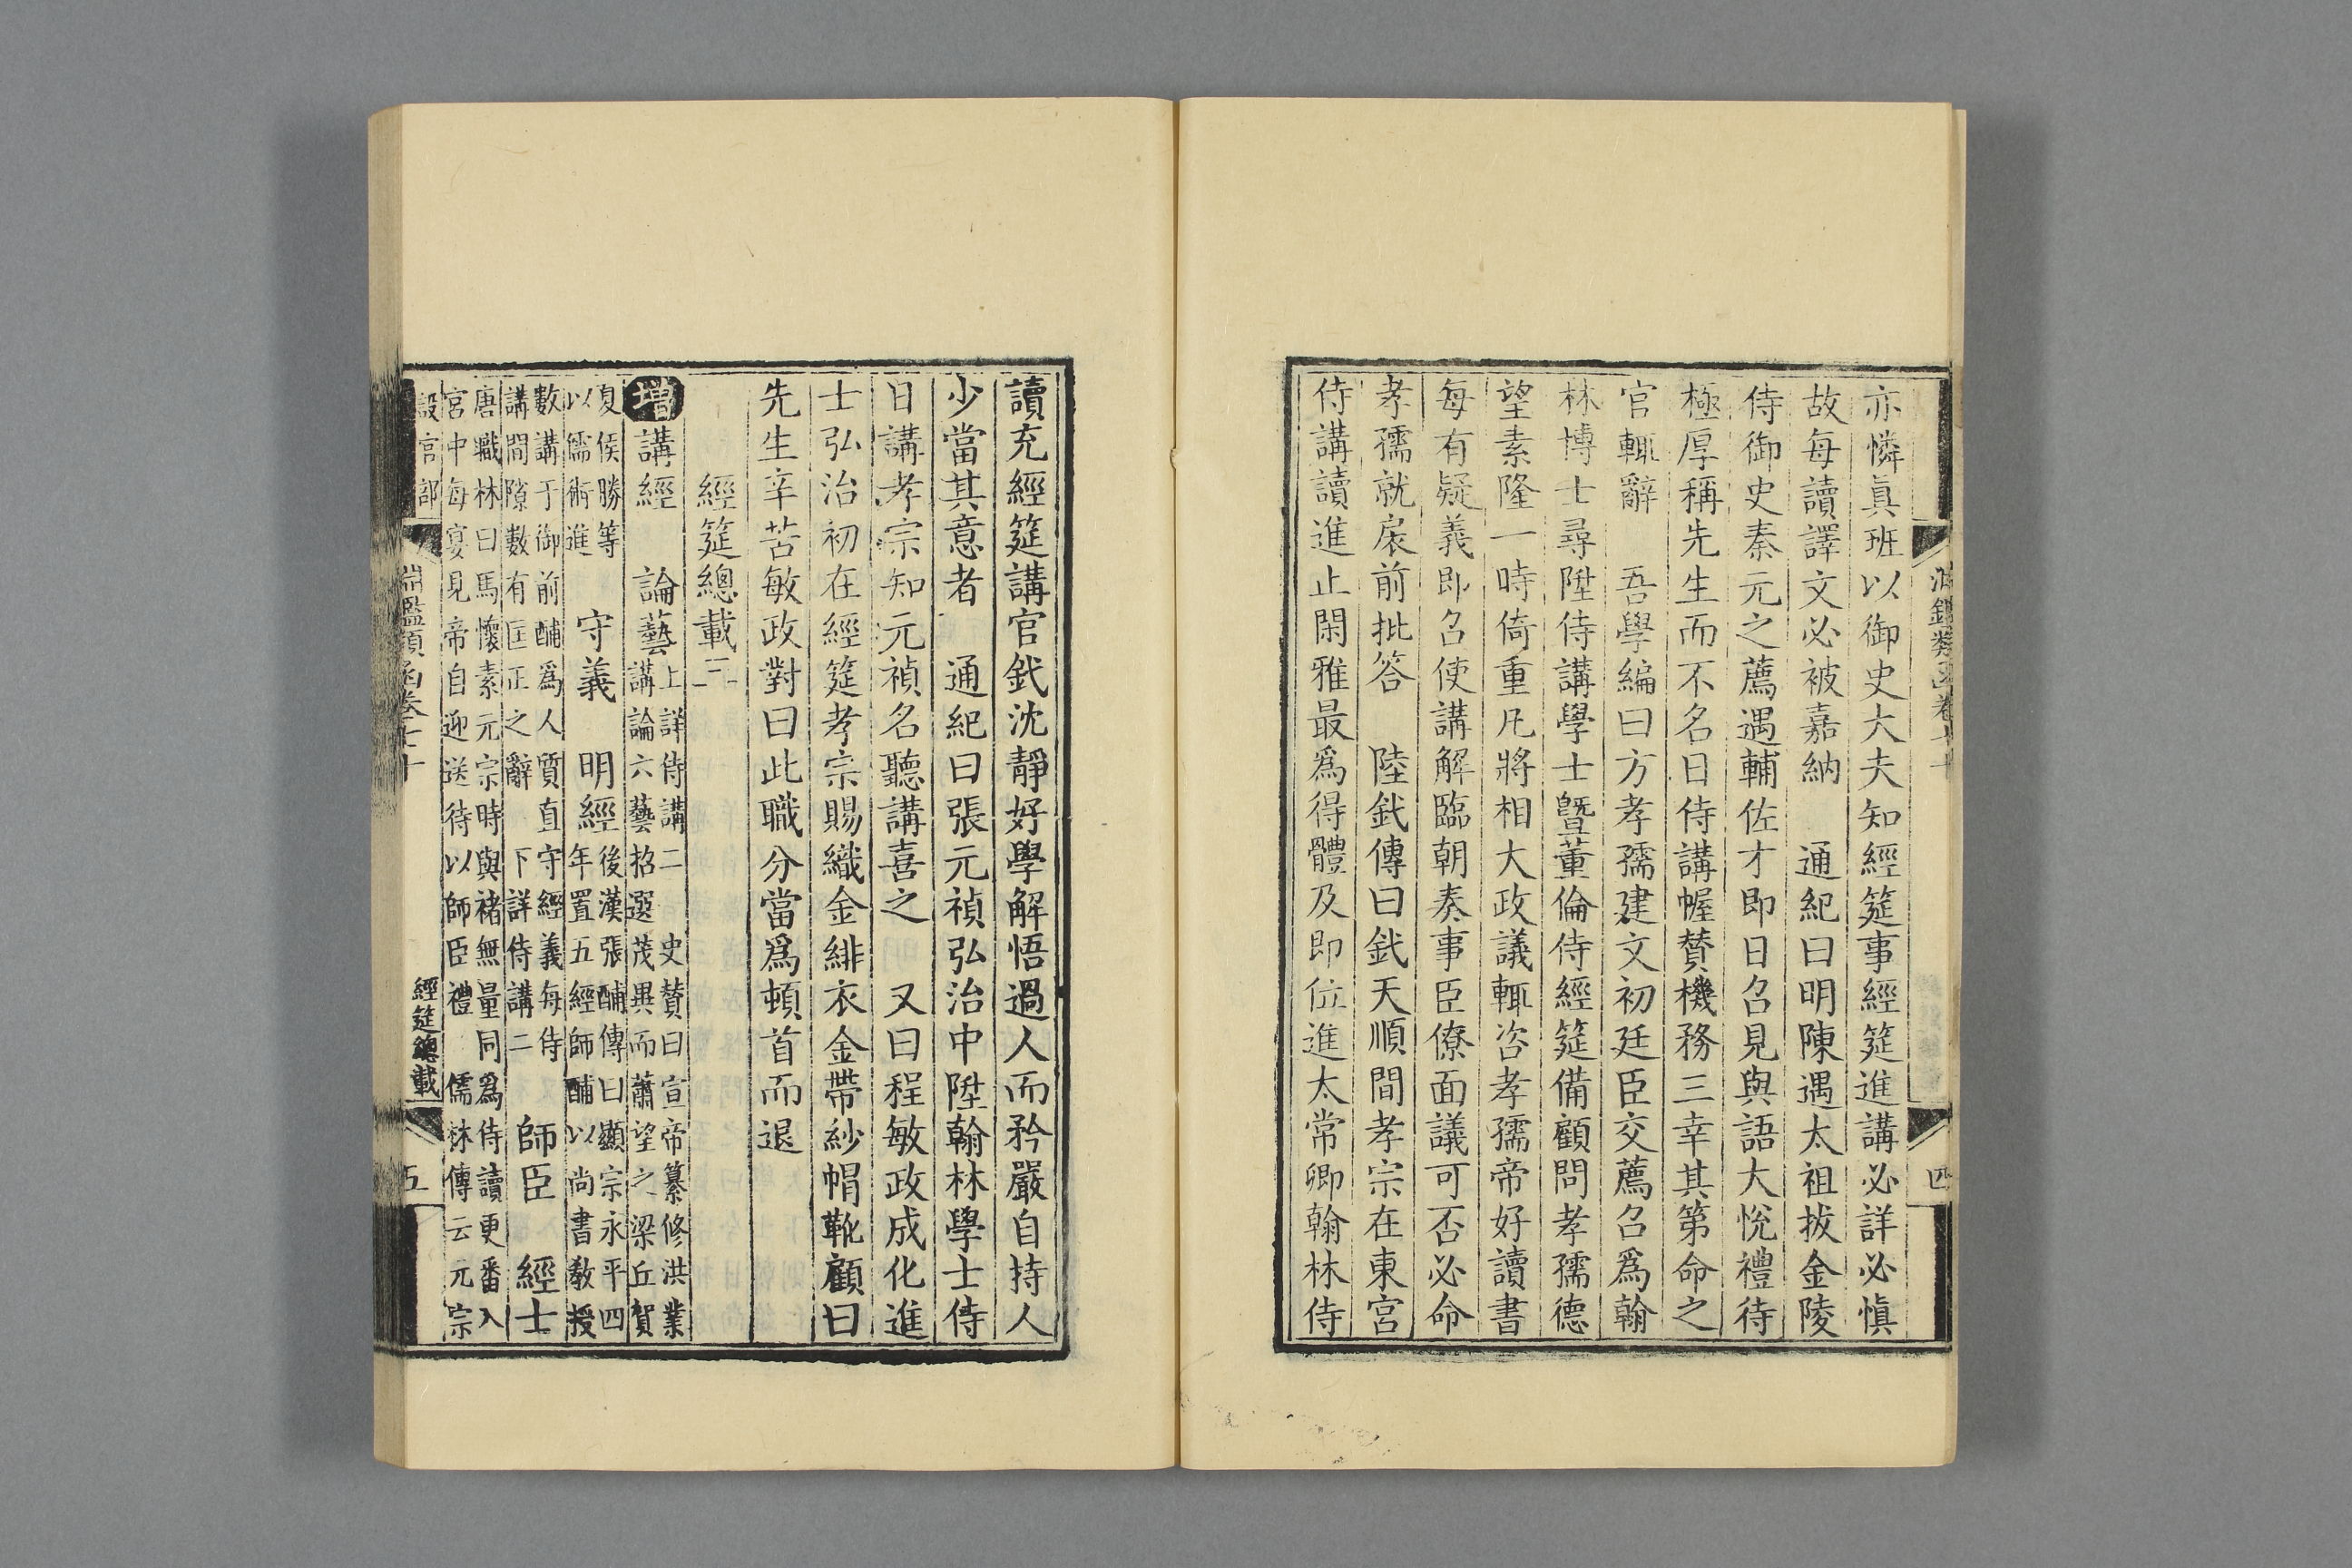 亦憐眞班以御史大夫知經筵事經筵進講必詳必愼
故每讀譯文必被嘉納　通紀曰明陳遇太祖拔金陵
侍御史秦元之薦遇輔佐才即日召見與語大悅禮待
極厚稱先生而不名日侍講幄贊機務三幸其第命之
官輒辭　吾學編曰方孝孺建文初廷臣交薦召爲翰
林博士尋陞侍講學士曁董倫侍經筵備顧問孝孺德
望素隆一時倚重凡將相大政議輒咨孝孺帝好讀書
每有疑義即召使講解臨朝奏事臣僚面議可否必命
孝孺就扆前批答　陸釴傳曰釴天順間孝宗在東宮
侍講讀進止閑雅最爲得體及即位進太常卿翰林侍
四
讀充經筵講官釴沈靜好學解悟過人而矜嚴自持人
少當其意者　通紀曰張元禎弘治中陞翰林學士侍
日講孝宗知元禎名聽講喜之　又曰程敏政成化進
士弘治初在經筵孝宗賜織金緋衣金帶紗帽靴顧曰
先生辛苦敏政對曰此職分當爲頓首而退
經筵總載三
增講經　論藝上詳侍講二　史贊曰宣帝纂修洪業
講論六藝招選茂異而蕭望之梁丘賀
夏侯勝等
以儒術進　守義　明經後漢張酺傳曰顯宗永平四
年置五經師酺以尚書敎授
數講于御前酺爲人質直守經義每侍
講間隙數有匡正之辭　下詳侍講二　師臣　經士
唐職林曰馬懷素元宗時與褚無量同爲侍讀更番入
宮中每宴見帝自迎送待以師臣禮　儒林傳云元宗
設官部
淵鑑類函卷七十
經筵總載
五